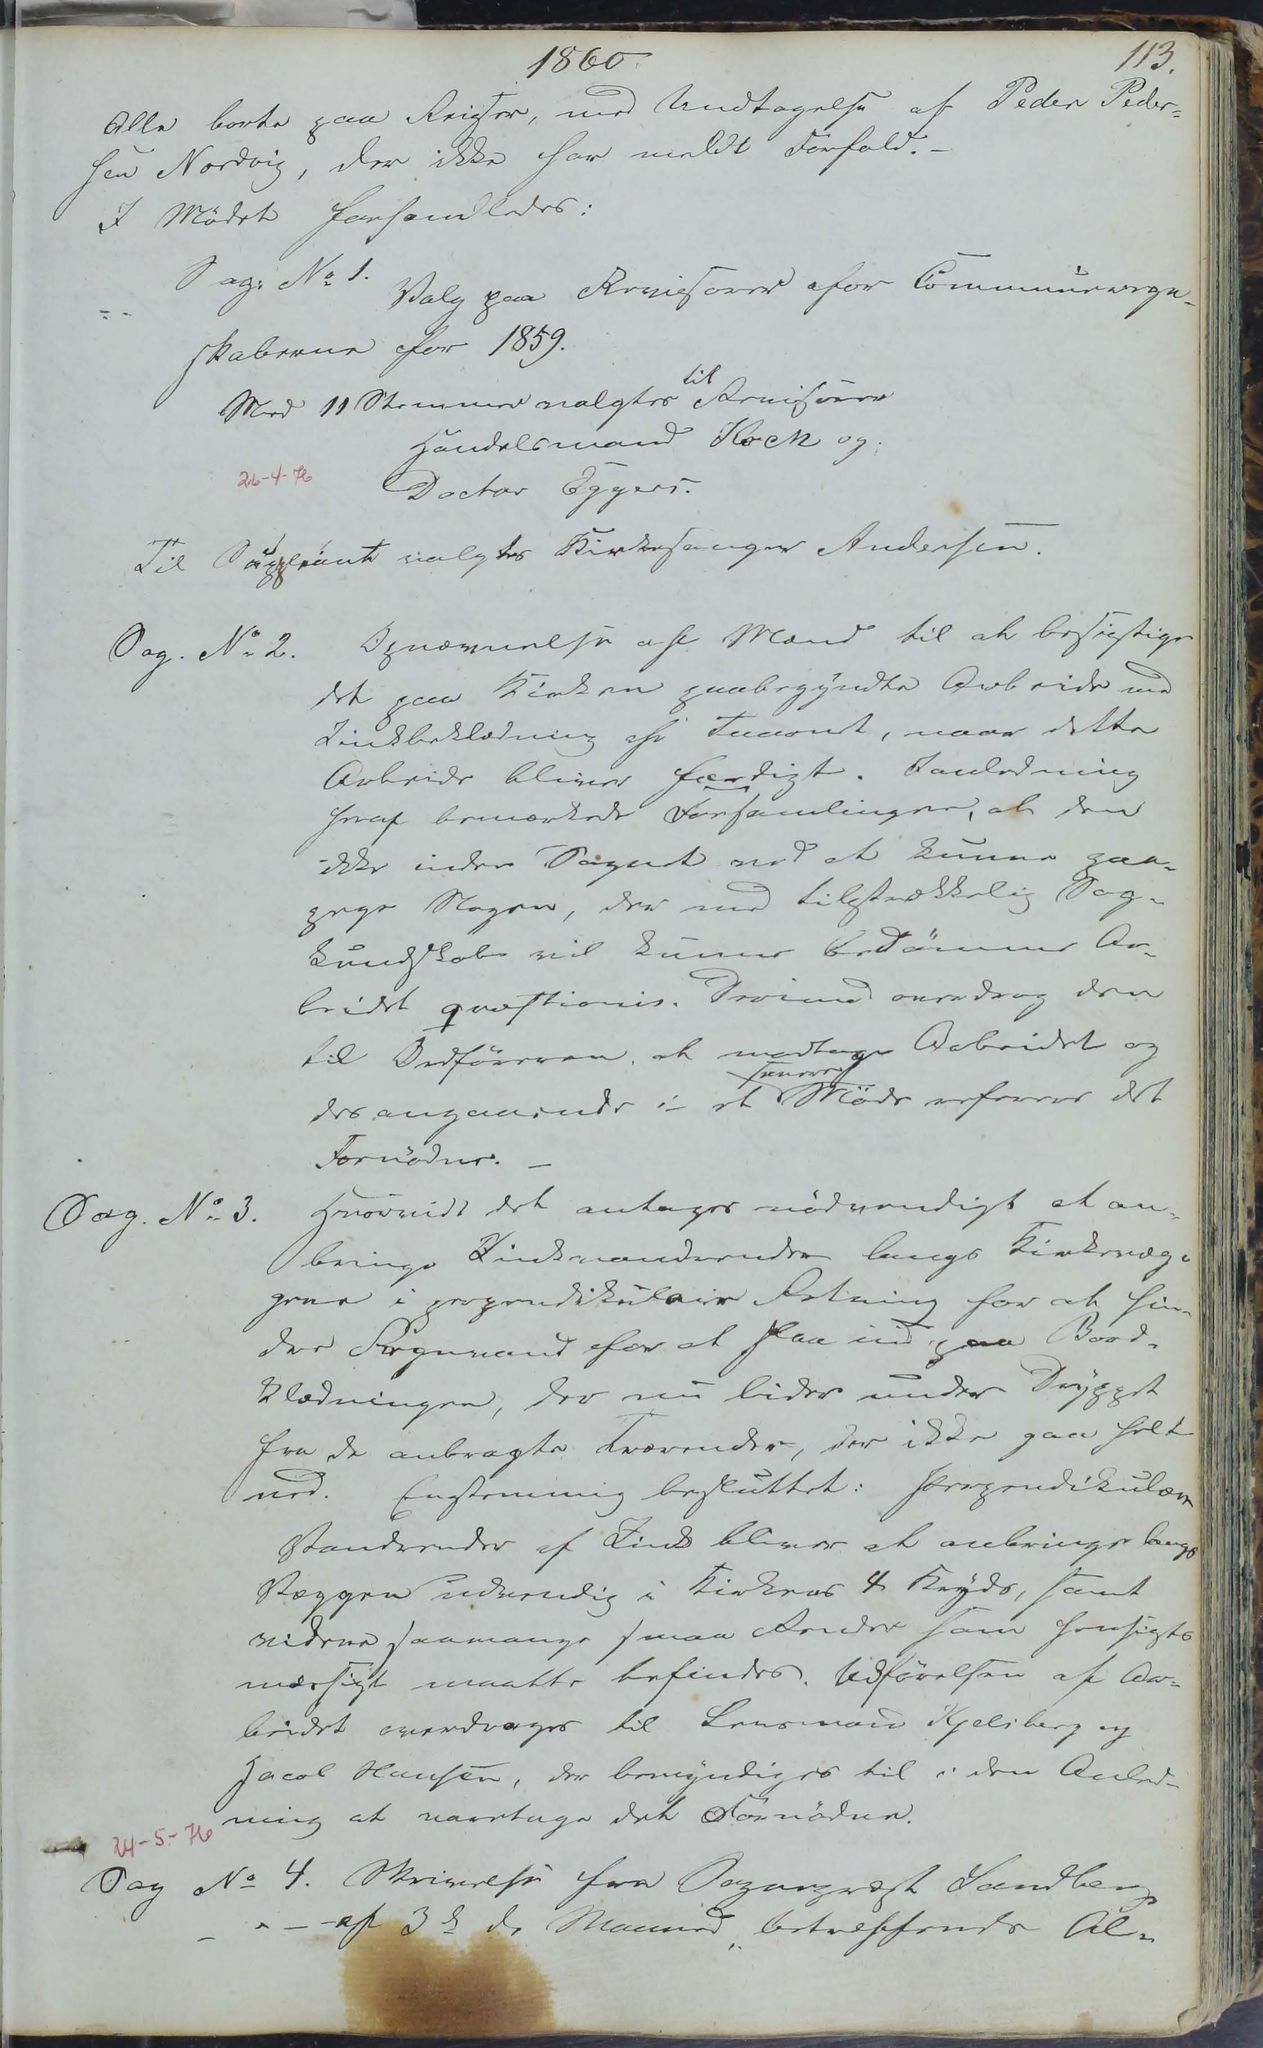 1860.
113.
Alle borte paa Reiser, med Undtagelse af Peder Peder-
sen Nordvig, der ikke har meldt Forfald. -
I Mødet forhandledes:
Sag. No 1.
Valg paa Revisorer for Communeregn-
skaberne for 1859.
Med 11 Stemmer valgtes til Revisorer
Handelsmand Koch og
26-4-76
Doctor Eggers.
Til Suppleant valgtes Kirkesanger Andersen.
Sag. No 2. Opnævnelse af Mænd til at besigtige
det paa Kirken paabegyndte Arbeide med
Zinkbeklædning af Taarnet, naar dette
Arbeide bliver færdigt. I Anledning
heraf bemærkede Forsamlingen, at den
ikke inden Sognet ved at kunne paa-
pege Nogen, der med tilstrækkelig Sag-
kundskab vil kunne bedømme Ar-
beidet qvæstionis. Derimod overdrog den
til Ordføreren at modtage Arbeidet og
desangaaende i et senere Møde referere det
Fornødne. -
Sag. No 3. Hvorvidt det antages nødvendigt at an-
bringe Zinkvandrender langs Kirkevæg-
gene i perpendikulair Retning for at hin-
dre Regnvand for at slaa ind paa Bord-
klædningen, der nu lider under Dryppet
fra de anbragte Tværrender, der ikke gaa helt
ned. Enstemmig besluttet: Perpendikulære
Vandrender af Zink bliver at anbringe langs
Væggen udvendig i Kirkens 4 Kryds, samt
videre saamange smaa Render som hensigts
mæssigt maatte befindes. Udførelsen af Ar-
beidet overdrages til Lensmand Kjelsberg og
Jacob Hansen, der bemyndiges til i den Anled-
ning at varetage det Fornødne.
24-5-76
Sag No 4. Skrivelse fra Sogneprest Sandberg
af 3 d. Maaned, betreffende Al-